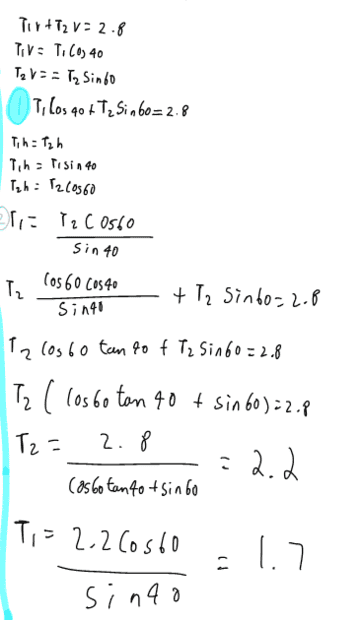 T₁v + T₂v = 2.8
T₁v = T₁ Cos 40
T₂v = = T₂ Sin60
① T₁ Cos 40 + T₂ Sin60 = 2.8
T₁h = T₂h
T₁h = T₁ sin 40
T₂h = T₂ Cos60
② T₁ = T₂ Cos60 / Sin 40
T₂ Cos60 Cos40 / Sin40 + T₂ Sin60 = 2.8
T₂ Cos60 tan 40 + T₂ Sin60 = 2.8
T₂ ( Cos60 tan 40 + Sin60) = 2.8
T₂ = 2.8 / Cos60tan40 + Sin60 = 2.2
T₁ = 2.2 Cos60 / Sin40 = 1.7